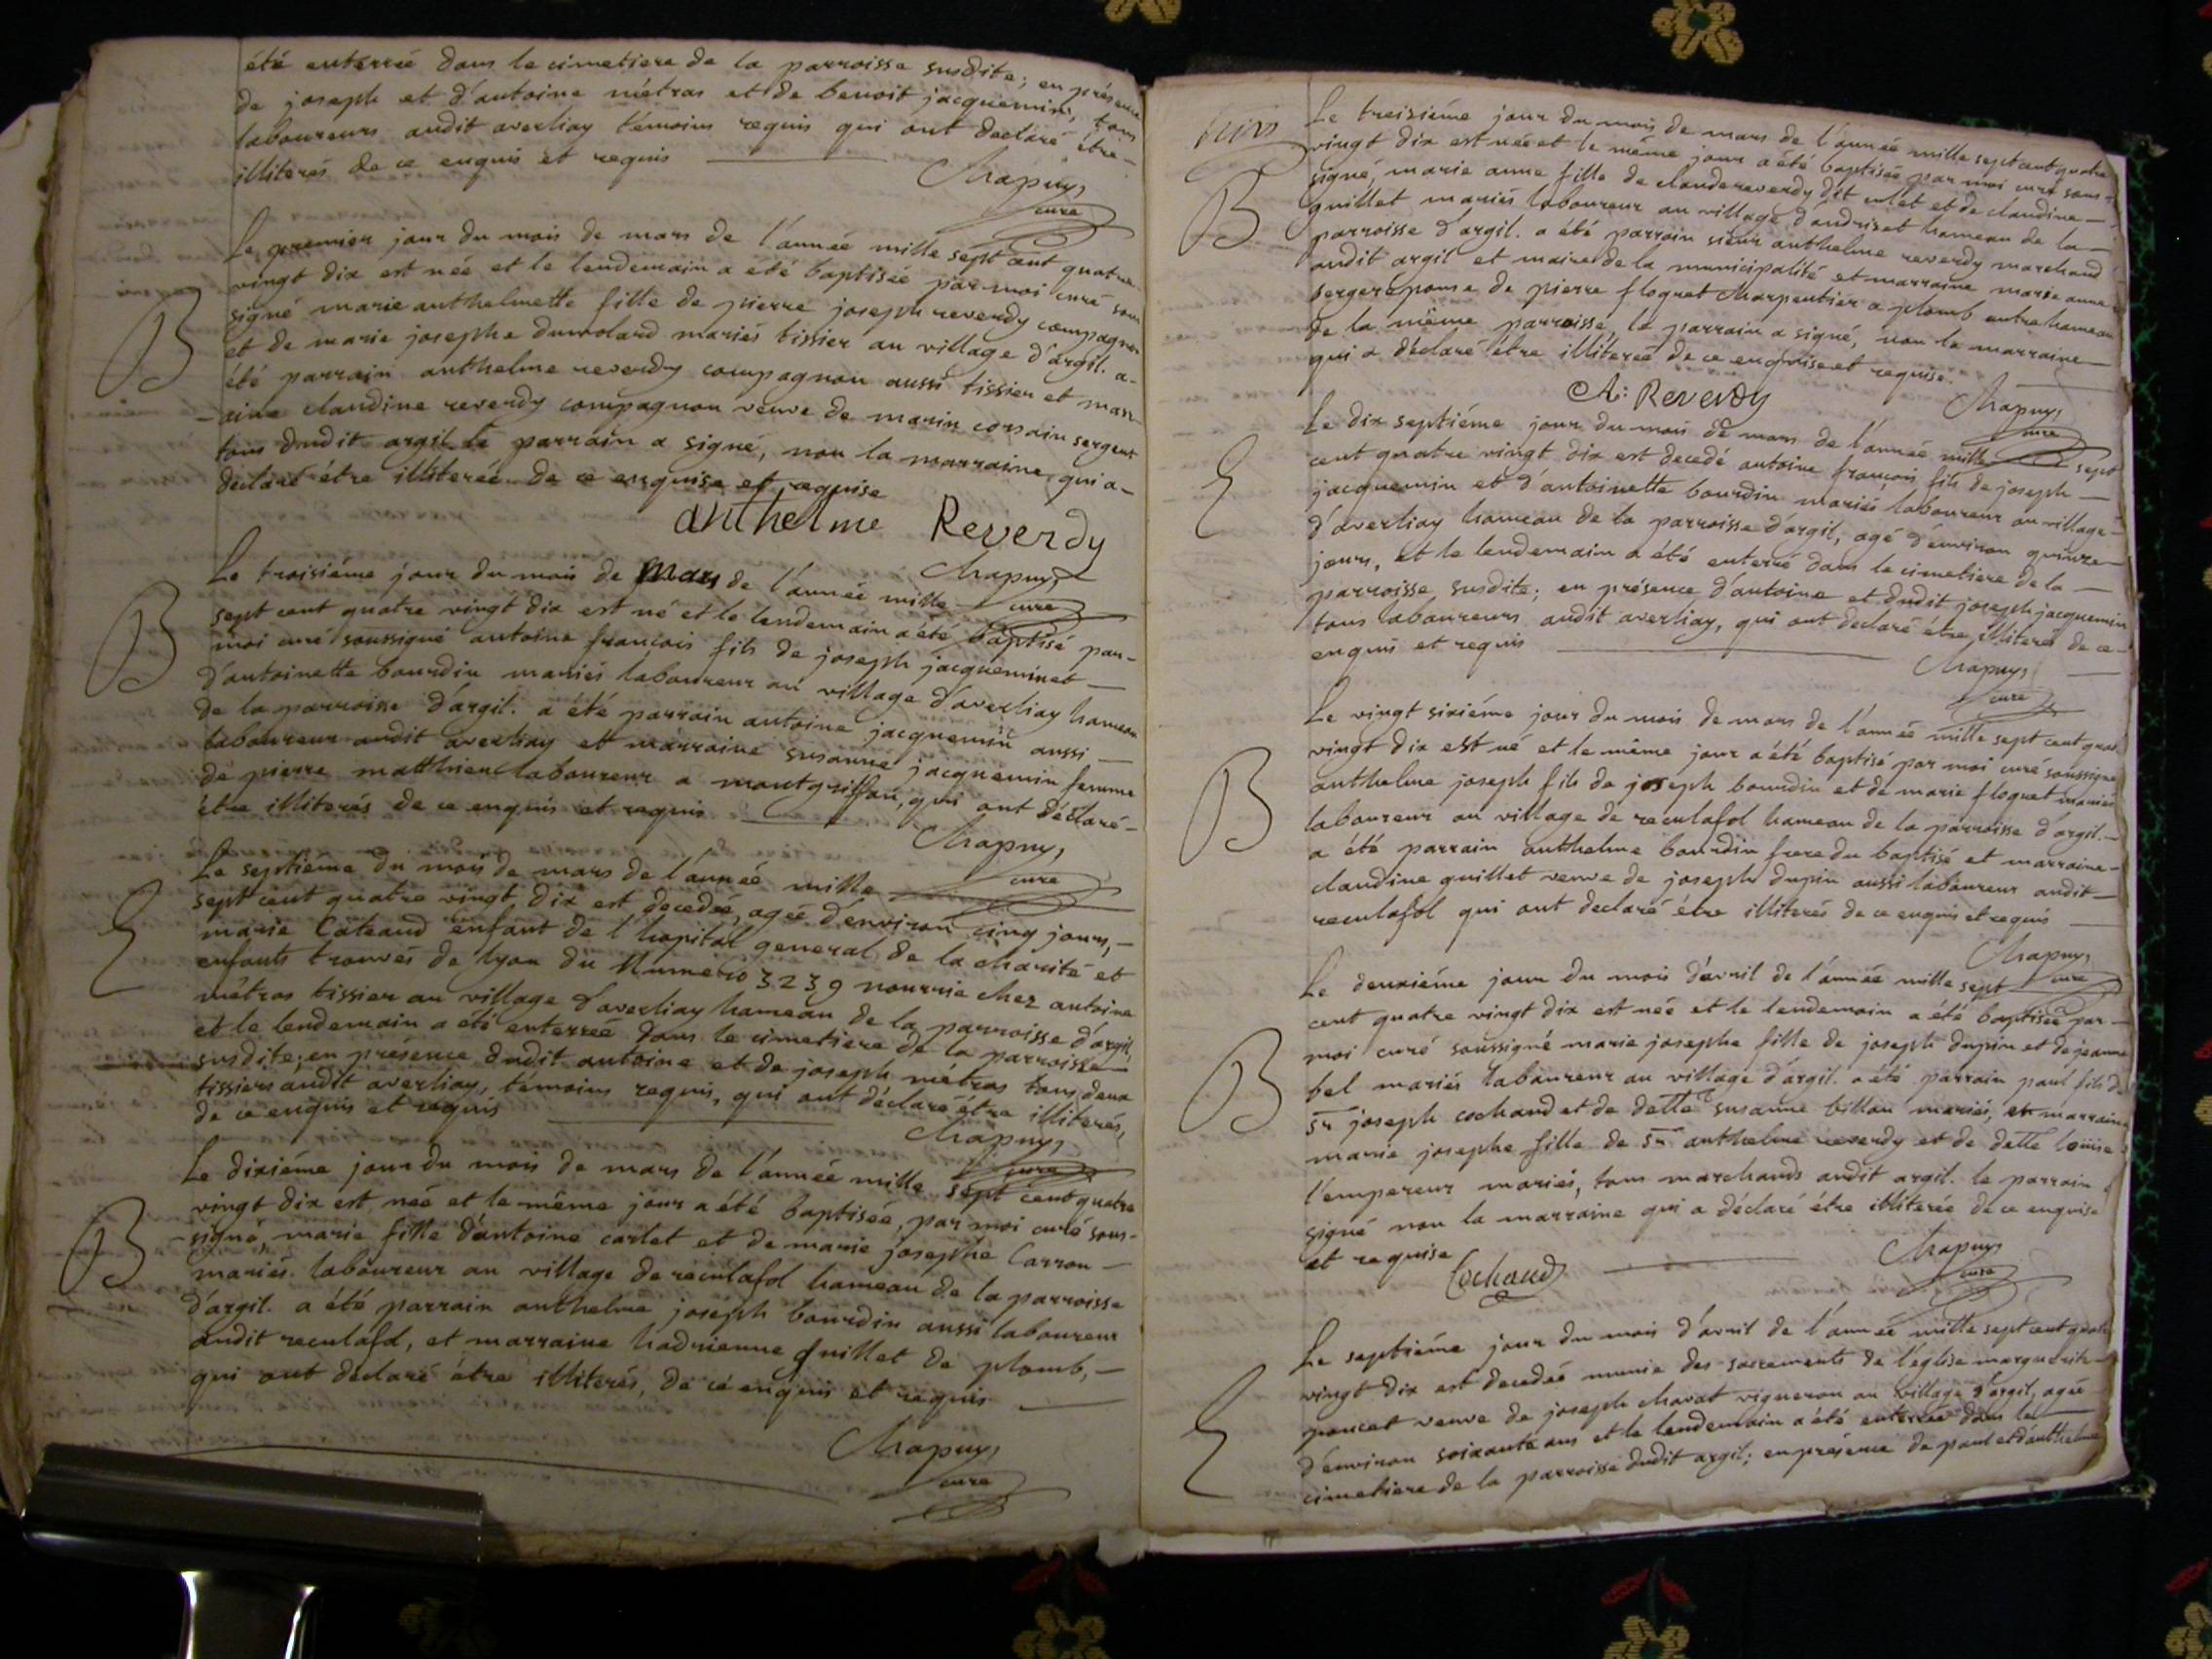 été enterré dans le cimetiere de la parroisse susdite; en présence
de joseph et d'antoine métras et de benoit jacquemin, tous
laboureurs audit averliay témoins requis qui ont declaré être
illiterés de ce enquis et requis
Chapuy,
curé
Le premier jour du mois de mars de l'année mille sept cent quatre
vingt dix est née et le lendemain a été baptisée par moi curé sous
signé marie anthelmette fille de pierre joseph reverdy compagnon
et de marie josephe dumolard mariés tissier au village d'argil. a
été parrain anthelme reverdy compagnon aussi tissier et marr
aine claudine reverdy compagnon veuve de marin corsain sergent
tous dudit argil le parrain a signé, non la marraine qui a
déclaré être illiterée de ce enquise et requise
anthelme Reverdy
Chapuy,
curé
B
Le troisiéme jour du mois de mars de l'année mille
sept cent quatre vingt dix est né et le lendemain a été baptisé par
moi curé soussigné antoine françois fils de joseph jacquemin et
d'antoinette bourdin mariés laboureur au village d'averliay hameau
de la parroisse d'argil. a été parrain antoine jacquemin aussi
laboureur audit averliay et marraine susanne jacquemin femme
de pierre matthieu laboureur a montgriffon, qui ont déclaré
être illiterés de ce enquis et requis
Chapuy,
curé
B
Le septiéme du mois de mars de l'année mille
sept cent quatre vingt dix est decedée, agée d'environ cinq jours,
marie Cateaud enfant de l'hopital general de la charité et
enfants trouvés de lyon du Numéro 3239 nourrie chez antoine
métras tissier au village d'averliay hameau de la parroisse d'argil,
et le lendemain a été enterrée dans le cimetiere de la parroisse
susdite; en présence dudit antoine et de joseph métras tous deux
tissiers audit averliay, témoins requis, qui ont déclaré être illiterés,
de ce enquis et requis
Chapuy,
curé
Le dixiéme jour du mois de mars de l'année mille sept cent quatre
vingt dix est née et le même jour a été baptisée, par moi curé sous-
signé, marie fille d'antoine carlet et de marie josephe Carron
mariés laboureur au village de reculafol hameau de la parroisse
d'argil. a été parrain anthelme joseph bourdin aussi laboureur
audit reculafol, et marraine hadrienne quillet de plomb,
qui ont déclaré être illiterés, de ce enquis et requis
Chapuy,
curé
B
Le treisiéme jour du mois de mars de l'année mille sept cent quatre
vingt dix est née et le même jour a été baptisée par moi curé sous
signé, marie anne fille de claude reverdy dit colet et de claudine
quillet mariés laboureur au village d'andriset hameau de la
parroisse d'argil. a été parrain sieur anthelme reverdy marchand
audit argil et maire de la municipalité et marraine marie anne
berger épouse de pierre floquet charpentier a plomb autre hameau
de la même parroisse, le parrain a signé, non la marraine
qui a déclaré être illiterée de ce enquise et requise.
A: Reverdy
Chapuy,
curé
B
Le dix septiéme jour du mois de mars de l'année mille sept
cent quatre vingt dix est decedé antoine françois fils de joseph
jacquemin et d'antoinette bourdin mariés laboureur au village
d'averliay hameau de la parroisse d'argil, agé d'environ quinze
jours, et le lendemain a été enterré dans le cimetiere de la
parroisse susdite; en présence d'antoine et dudit joseph jacquemin
tous laboureurs audit averliay, qui ont declaré être illiterés de ce
enquis et requis
Chapuy,
curé
Le vingt sixiéme jour du mois de mars de l'année mille sept cent quatre
vingt dix est né et le même jour a été baptisé par moi curé soussigné
anthelme joseph fils de joseph bourdin et de marie floquet mariés
laboureur au village de reculafol hameau de la parroisse d'argil.
a été parrain anthelme bourdin frere du baptisé et marraine
claudine quillet veuve de joseph dupin aussi laboureur audit
reculafol qui ont declaré être illiterés de ce enquis et requis
Chapuy,
curé
B
Le deuxiéme jour du mois d'avril de l'année mille sept
cent quatre vingt dix est née et le lendemain a été baptisée par
moi curé soussigné marie josephe fille de joseph dupin et de jeanne
bel mariés laboureur au village d'argil. a été parrain paul fils de
sr joseph cochaud et de delle susanne billon mariés, et marraine
marie josephe fille de sr anthelme reverdy et de delle loüise
l'empereur mariés, tous marchands audit argil. le parrain a
signé non la marraine qui a déclaré être illiterée de ce enquise
et requise
Cochaud
Chapuy,
curé
B
Le septiéme jour du mois d'avril de l'année mille sept cent quatre
vingt dix est decedée munie des sacrements de l'église marguerite
poncet veuve de joseph chavat vigneron au village d'argil, agée
d'environ soixante ans et le lendemain a été enterrée dans le
cimetiere de la parroisse dudit argil; en présence de paul et d'anthelme